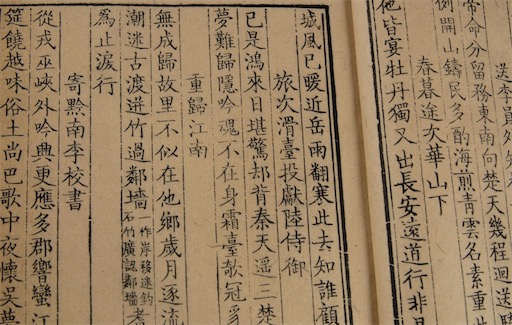 送李員外知
帝命分留務東南向楚天幾程迴送
例開山鑄民多酌海煎青雲名素重此
春暮途次華山下
他皆宴牡丹獨又出長安遠道行非易
城風已暖近岳雨翻寒此去知誰顧
旅次滑臺投獻陸侍御
已是鴻來日堪驚却背秦天遥三楚
夢難歸隱吟魂不在身霜臺欹冠豸
重歸江南
無成歸故里不似在他鄉歲月逐流
潮逃古渡迸竹過鄰墻一作岸移逃釣石竹廣認鄰墻耆
爲止淚行
寄黔南李校書
從戎巫峽外吟興更應多郡響蠻江
筵饒越味俗土尚巴歌中夜懷吴夢